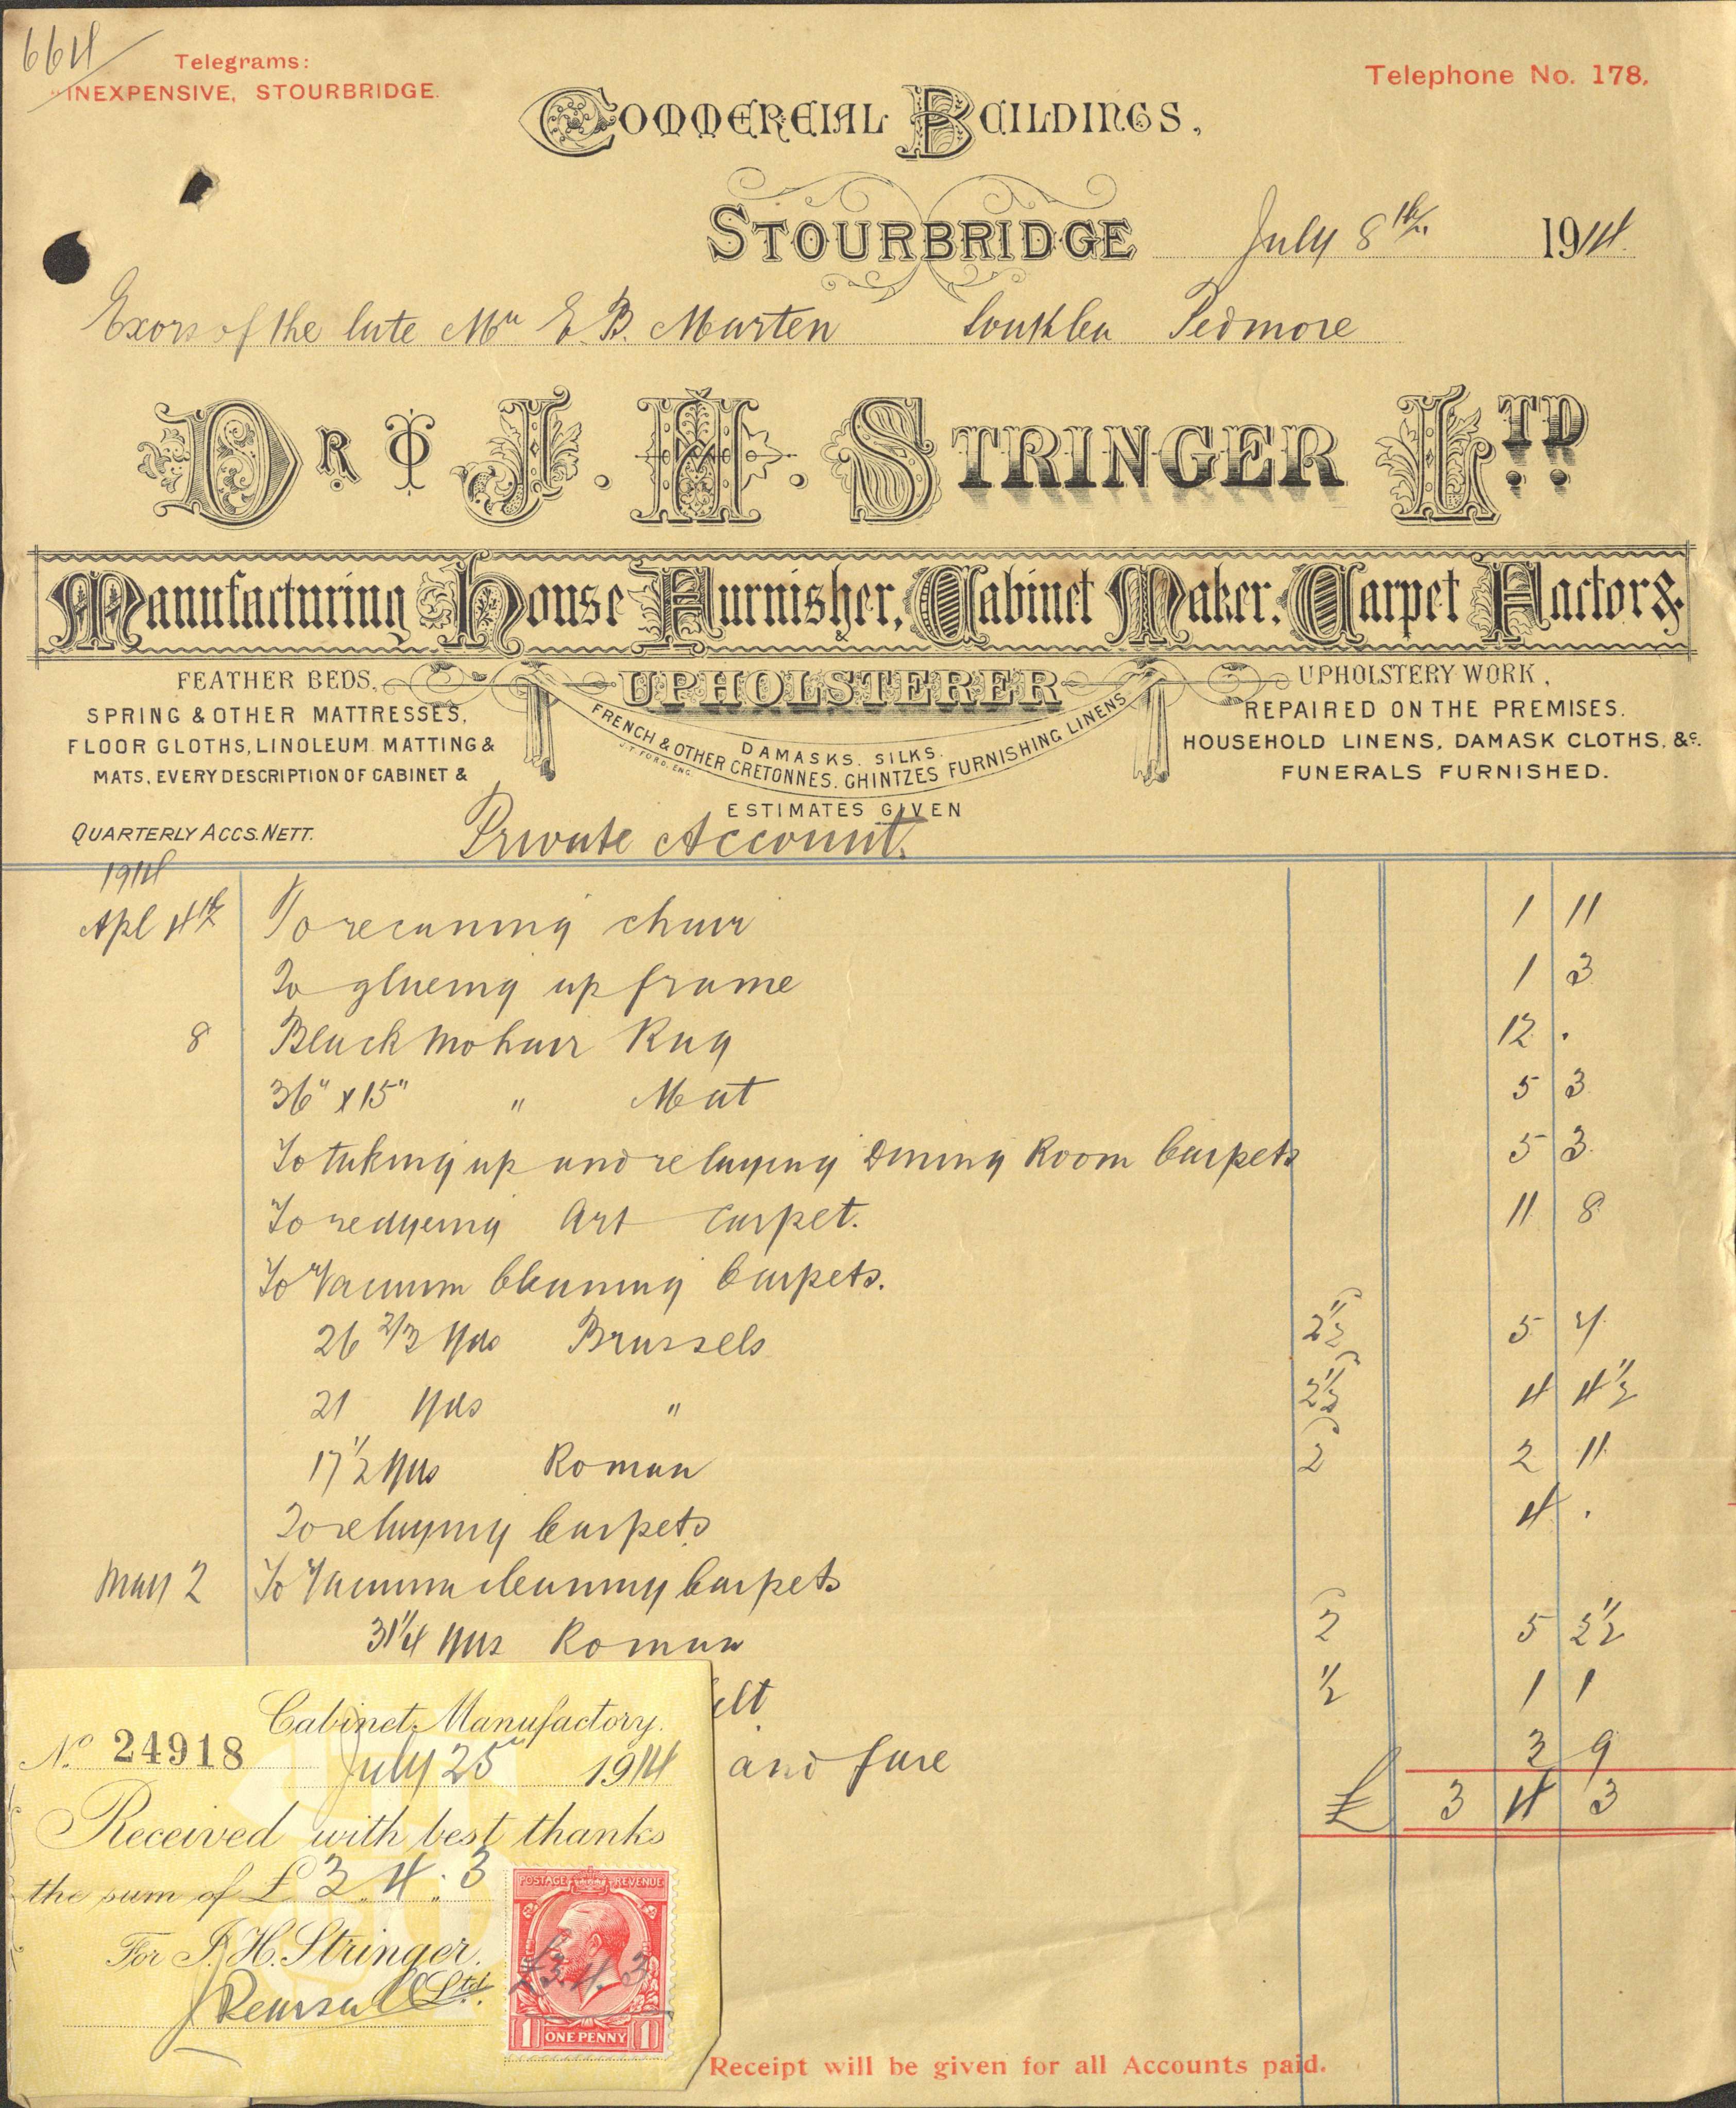 664
Telegrams:
"INEXPENSIVE, STOURBRIDGE.
Telephone No. 178.
COMMERCIAL BUILDINGS,
STOURBRIDGE July 8th 1914
Exors of the late Mr E. B. Marten Southlea Pedmore
DR TO J. H. STRINGER LTD
Manufacturing House Furnisher, Cabinet Maker, Carpet Factor &
UPHOLSTERER
FEATHER BEDS,
SPRING & OTHER MATTRESSES,
FLOOR CLOTHS, LINOLEUM MATTING &
MATS, EVERY DESCRIPTION OF CABINET &
DAMASKS. SILKS.
FRENCH & OTHER CRETONNES. CHINTZES FURNISHING LINENS
J.T. FORD, ENG.
ESTIMATES GIVEN
UPHOLSTERY WORK,
REPAIRED ON THE PREMISES.
HOUSEHOLD LINENS, DAMASK CLOTHS, &c.
FUNERALS FURNISHED.
QUARTERLY ACCS. NETT.
Private Account.
1914
Apl 4th To recaning chair 1 11
To glueing up frame 1 3
8 Black Mohair Rug 12 .
36" x 15" " Mat 5 3
To taking up and relaying Dining Room Carpets 5 3
To redyeing Art Carpet. 11 8
To Vacuum Cleaning Carpets.
26 2/3 yds Brussels 2½ 5 7
21 yds " 2½ 4 4½
17½ yds Roman 2 2 11
To relaying Carpets 4 .
May 2 To Vacuum cleaning Carpets
31¼ yds Roman 2 5 2½
elt ½ 1 1
and fare 2 9
£ 3 4 3
Cabinet Manufactory.
No. 24918 July 25 1914
Received with best thanks
the sum of £ 3 . 4 : 3
For J. H. Stringer.
Ltd.
POSTAGE REVENUE
£3.4.3
1 ONE PENNY 1
Receipt will be given for all Accounts paid.